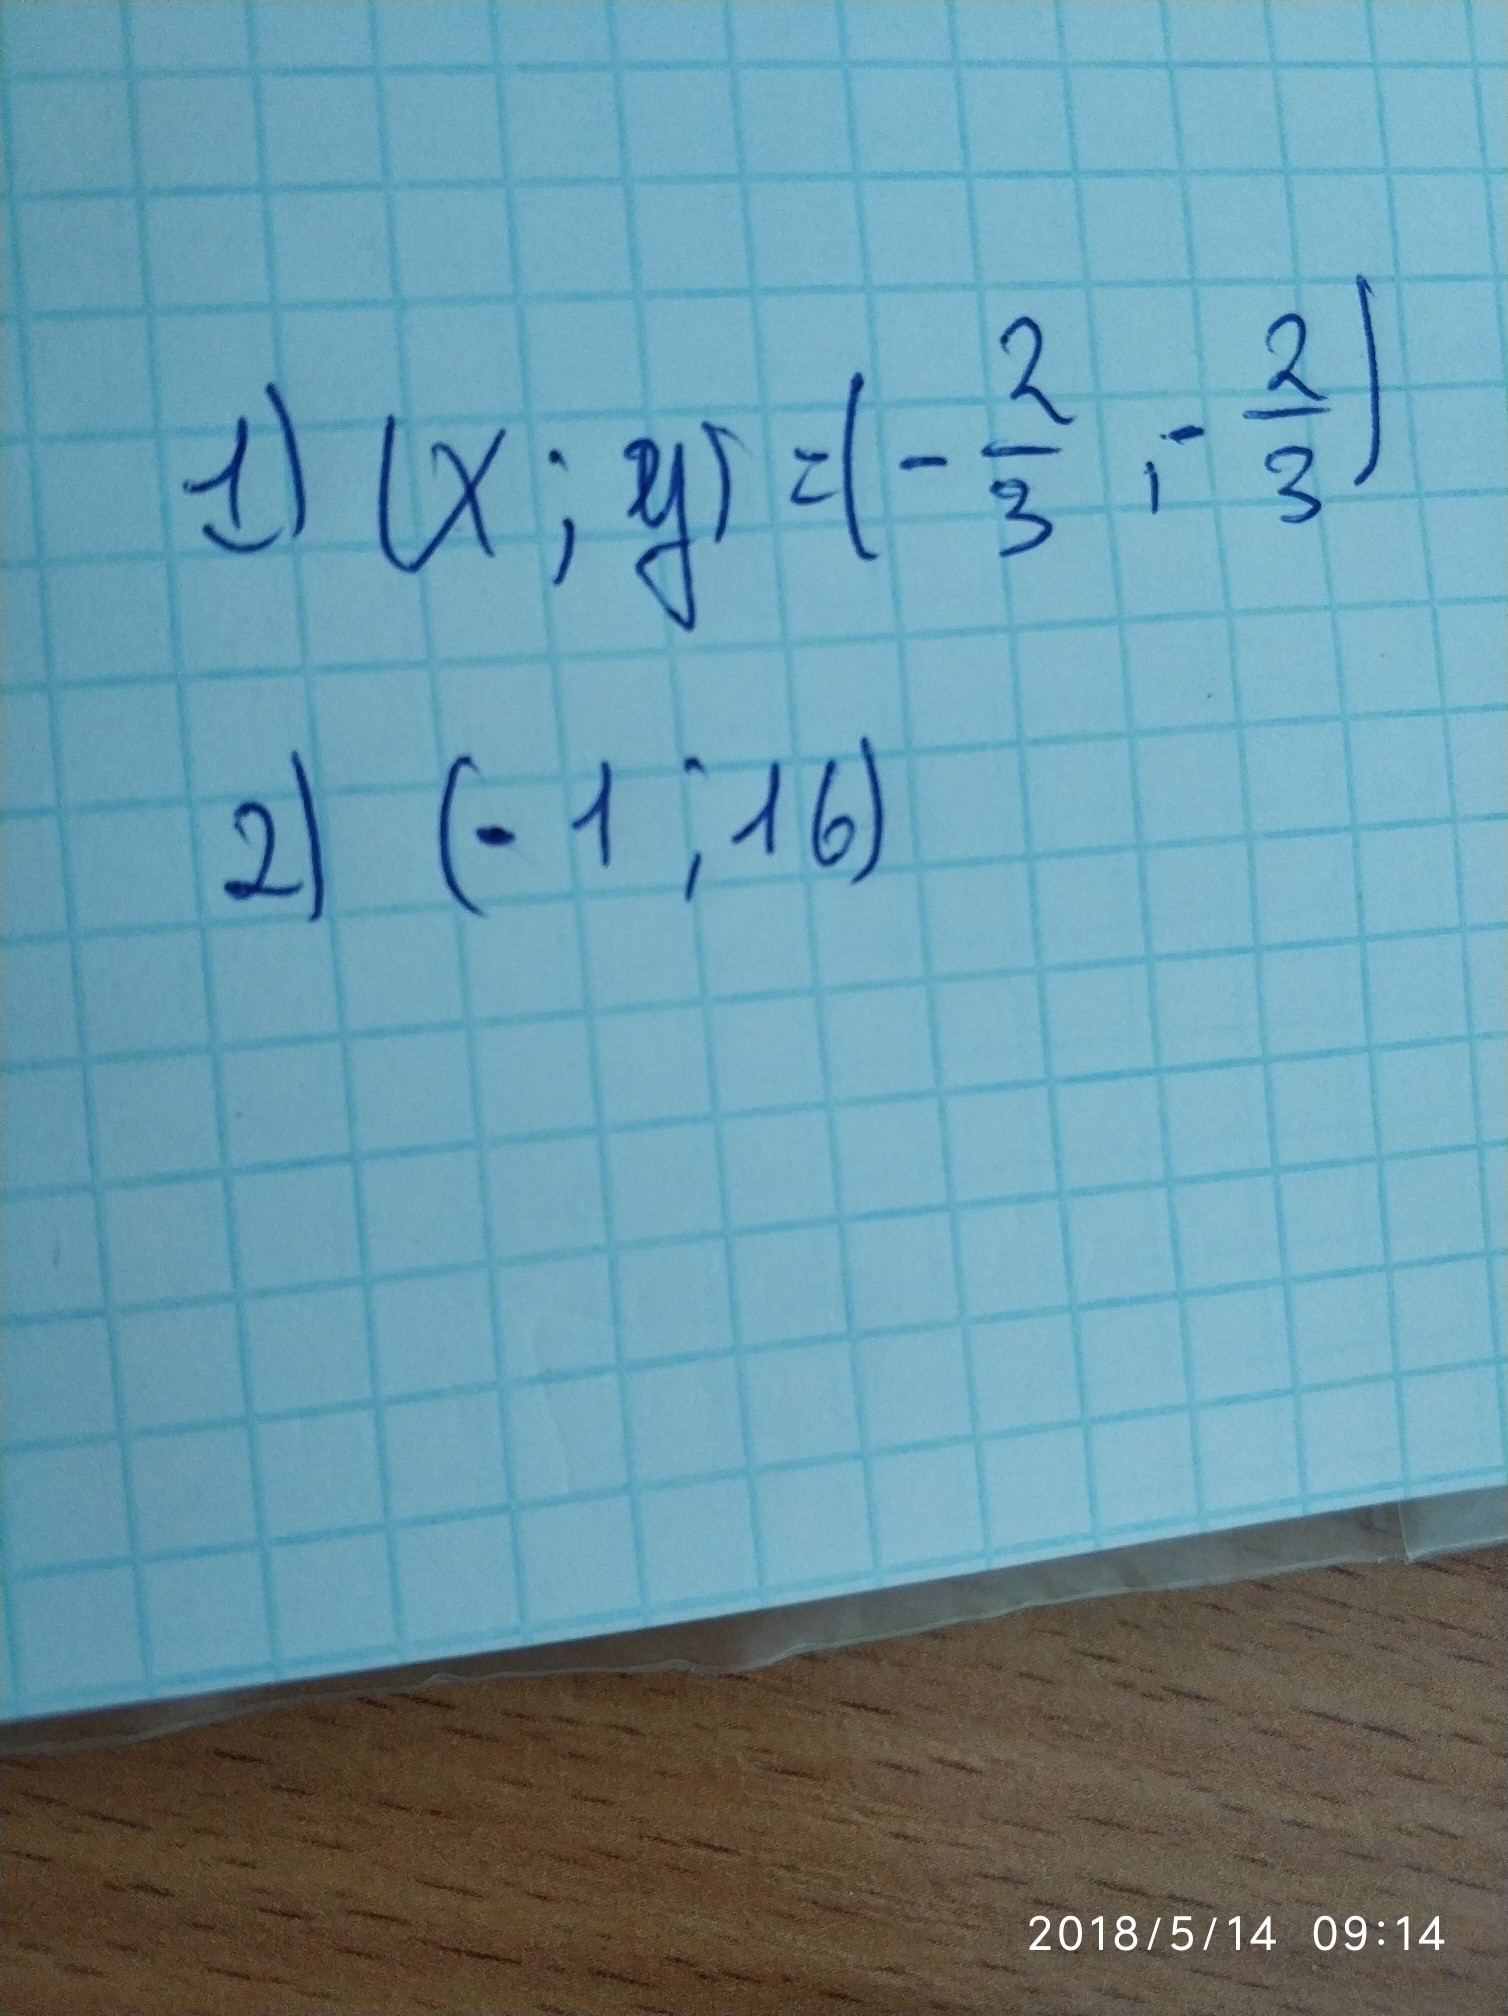 1) (x ; y) = (- 2/3 ; - 2/3)
2) (- 1 ; 16)
2018/5/14 09:14